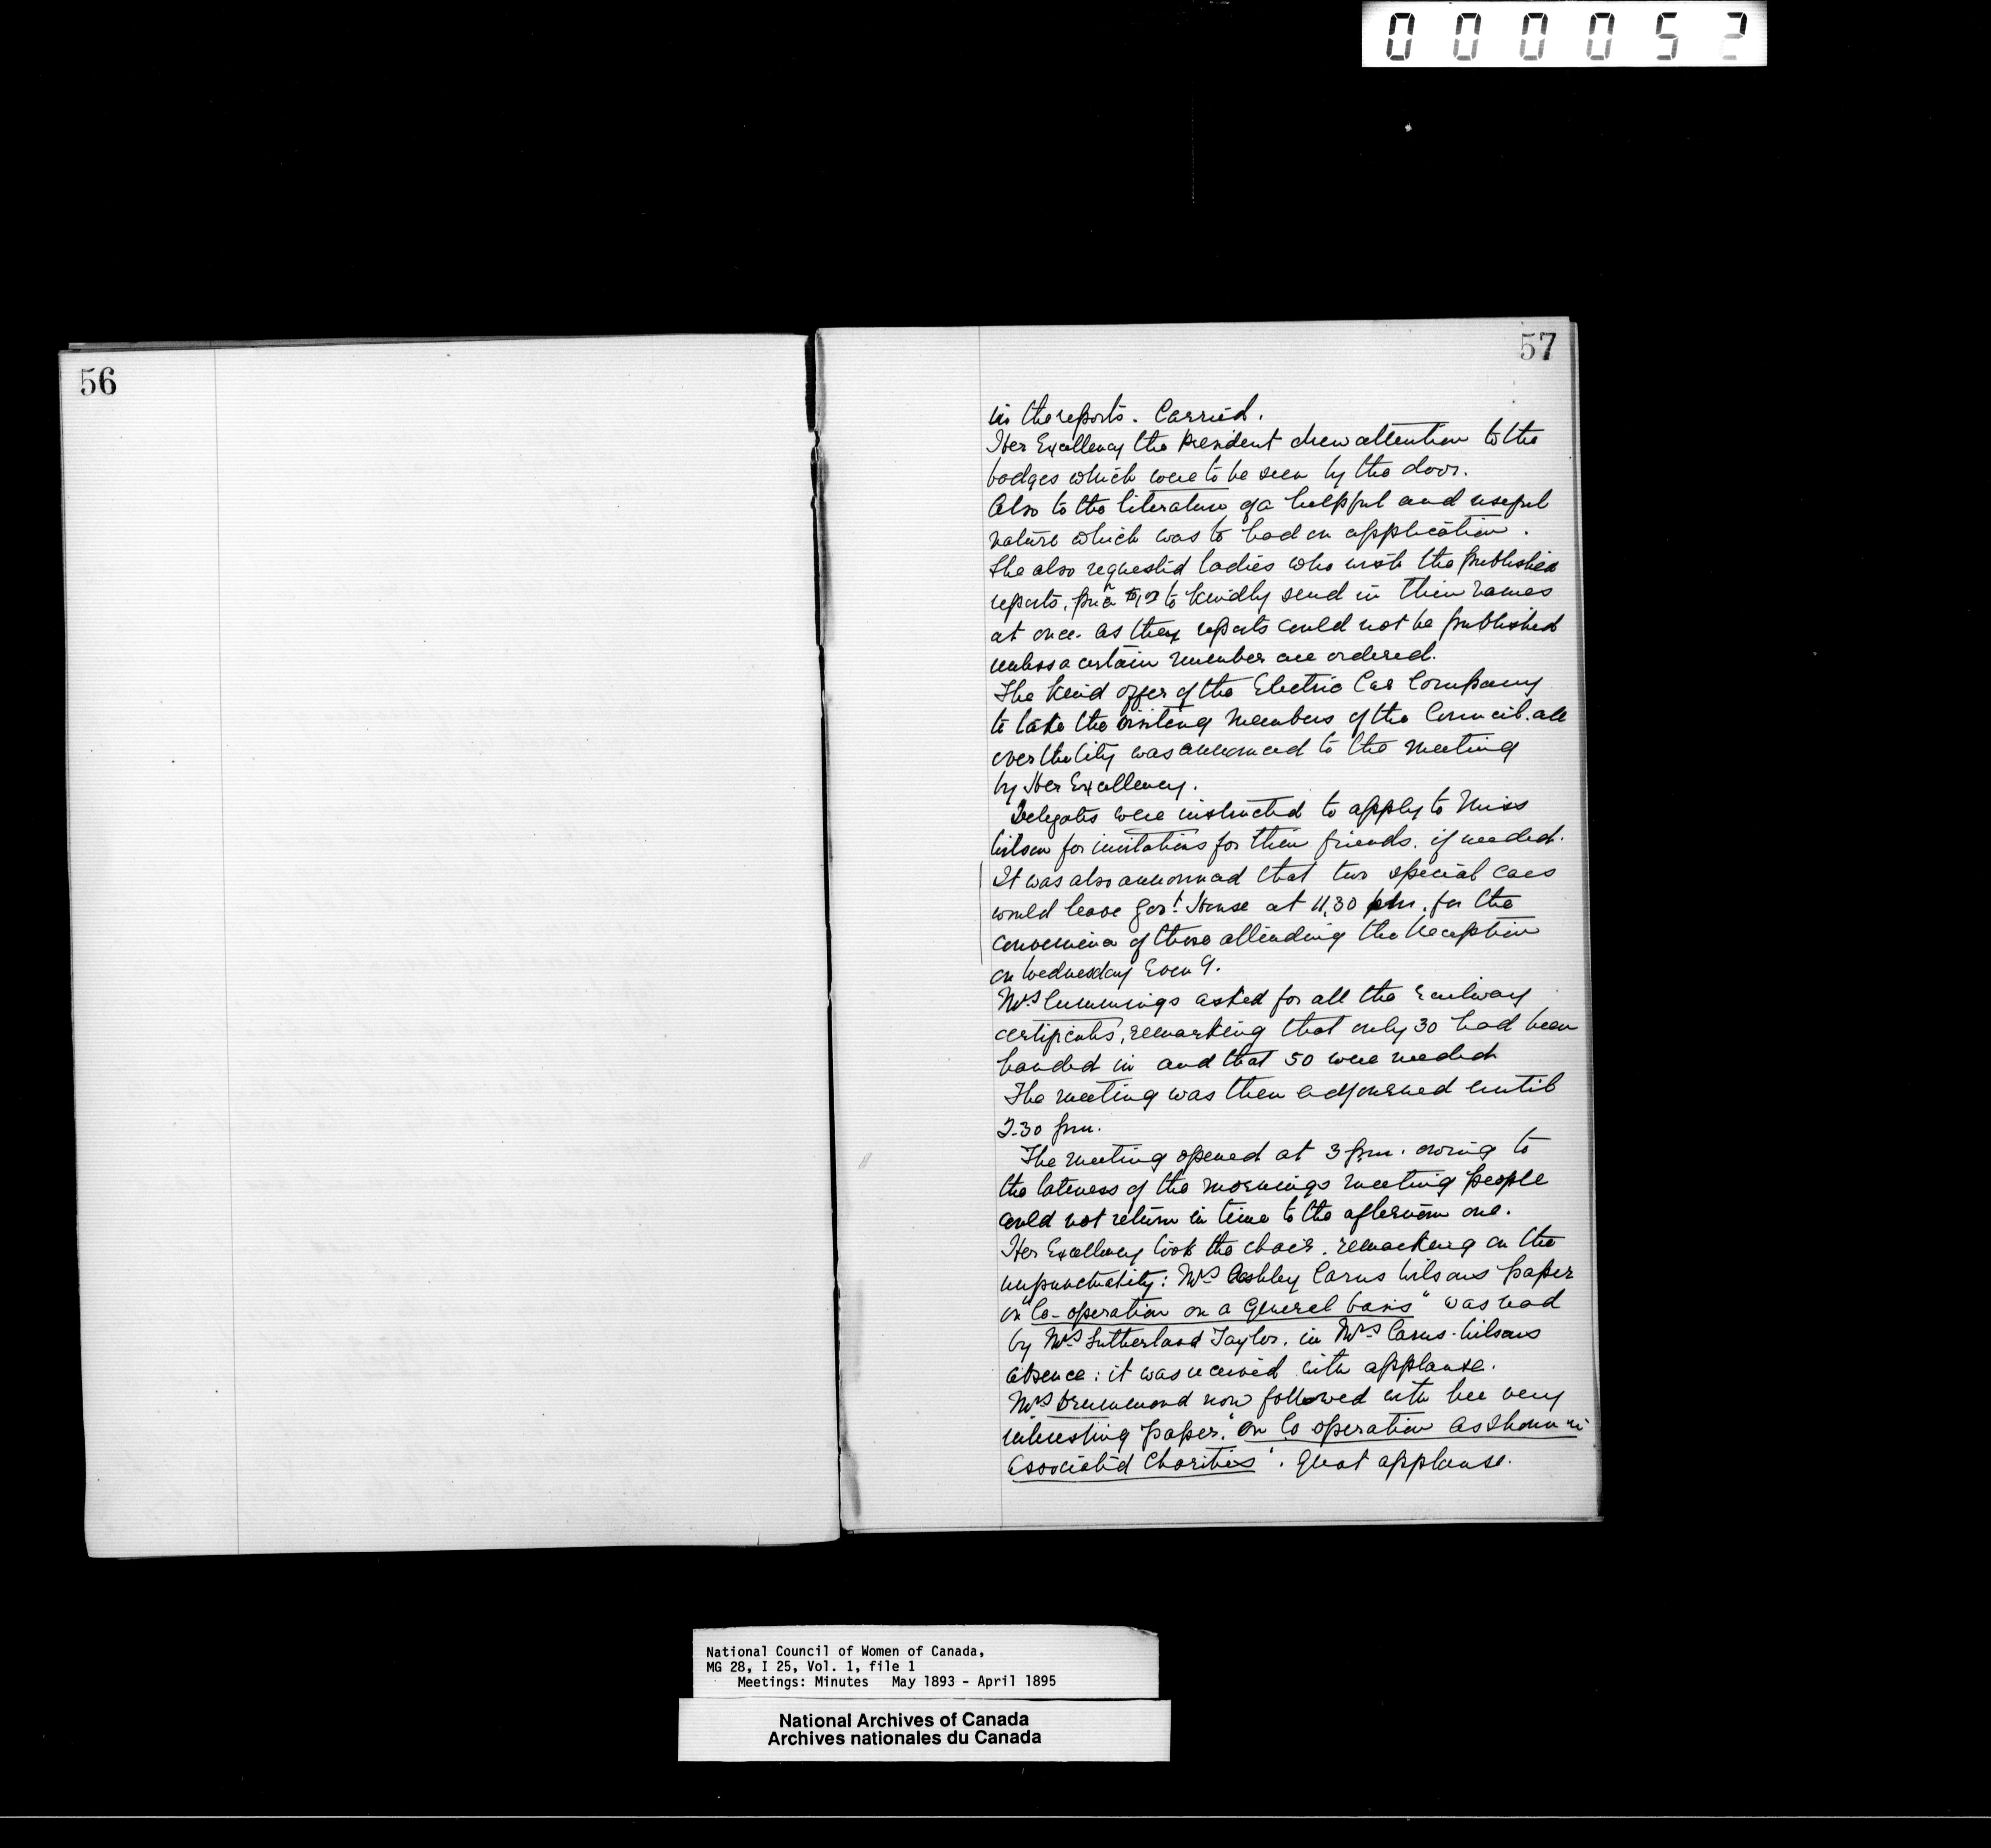 000052
56
57
in the reports. Carried.
Her Excellency the President drew attention to the
badges which were to be seen by the door.
Also to the literature of a helpful and useful
nature which was to had on application.
She also requested ladies who wish the published
reports, to kindly send in their names
at once. as they reports could not be published
unless a certain number are ordered.
The kind offer of the Electric Car Company
to take the visiting members of the Council. all
over the City was announced to the meeting
by Her Excellency.
Delegates were instructed to apply to Miss
Wilson for invitations for their friends. if needed.
It was also announced that two special cars
would leave Govt. House at 11.30 pm. for the
convenience of those attending the Reception
on Wednesday Eveng.
Mrs Cummings asked for all the railway
certificates, remarking that only 30 had been
handed in and that 50 were needed
The meeting was then adjourned until
2.30 pm.
The meeting opened at 3 p.m. owing to
the lateness of the mornings meeting people
could not return in time to the afternoon one.
Her Excellency took the chair. remarking on the
unpunctuality: Mrs Ashley Carus Wilsons paper
on "Co-operation on a General basis" was read
by Mrs Sutherland Taylor. in Mrs Carus-Wilsons
absence: it was received with applause.
Mrs Drummond now followed with her very
interesting paper. "On Co operation as shown in
Associated Charities". Great applause.
National Council of Women of Canada,
MG 28, I 25, Vol. 1, file 1
Meetings: Minutes May 1893 - April 1895
National Archives of Canada
Archives nationales du Canada